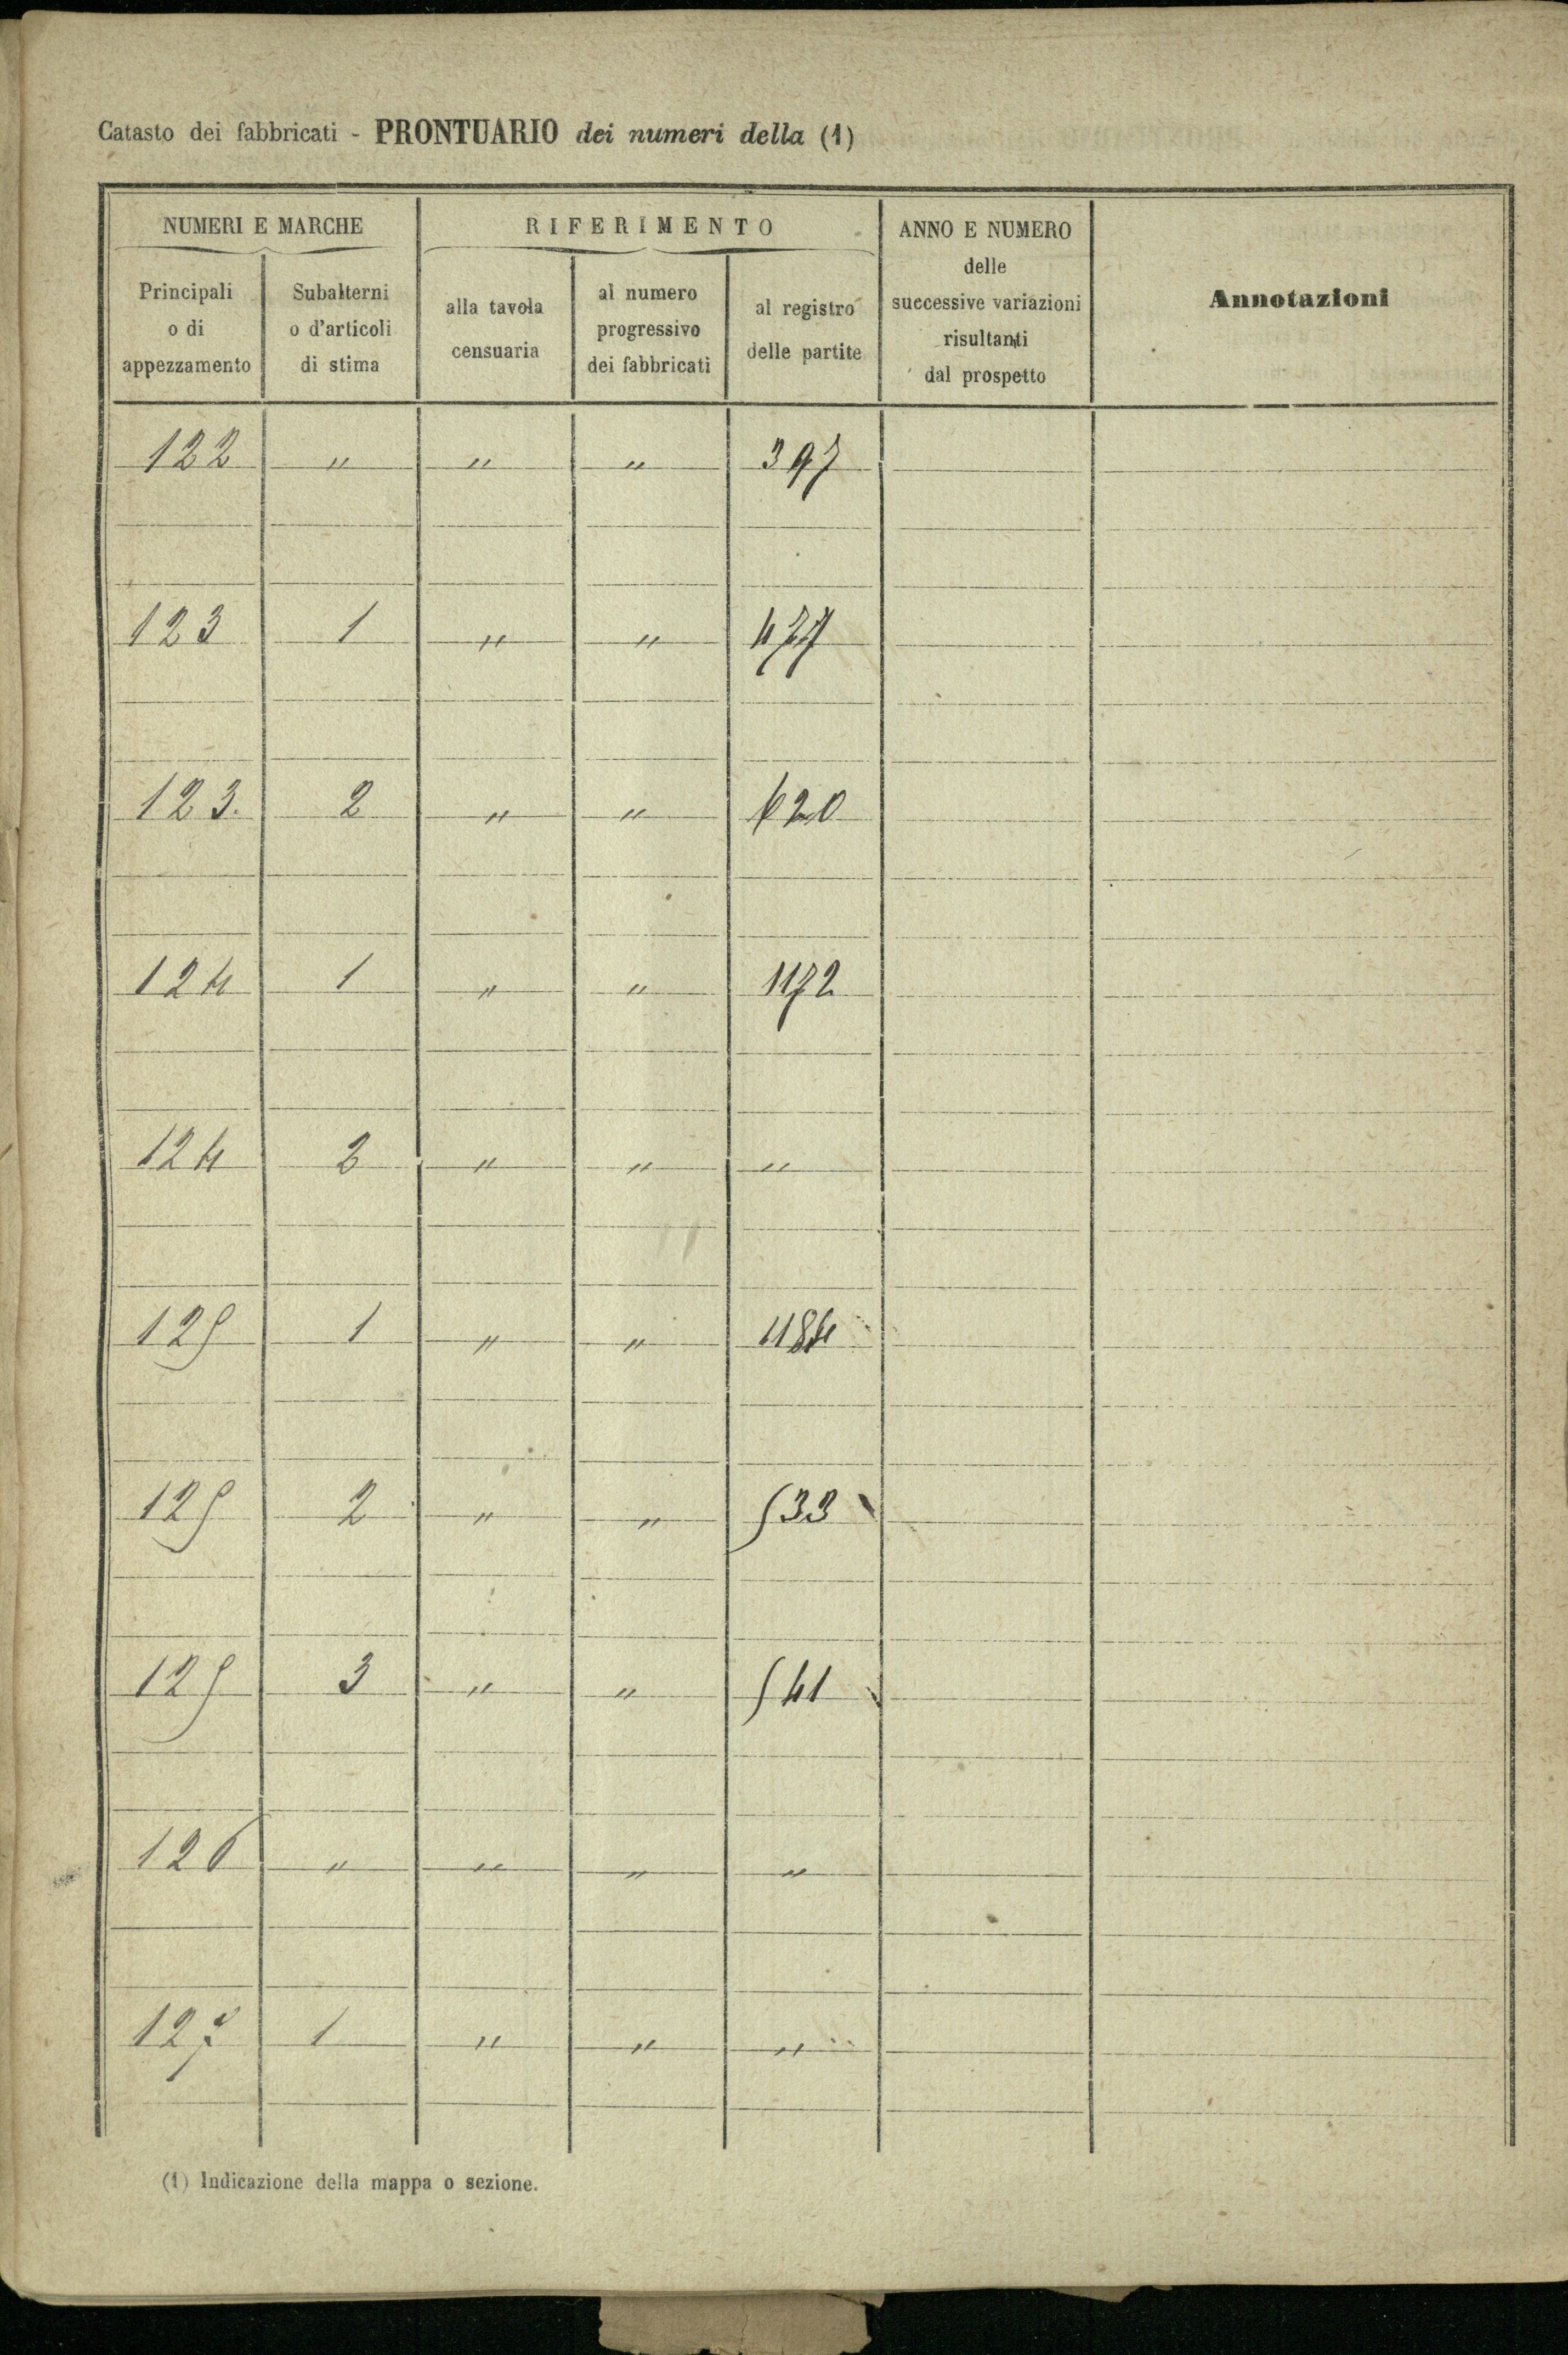 Catasto dei fabbricati - PRONTUARIO dei numeri della (1)
NUMERI E MARCHE
RIFERIMENTO
ANNO E NUMERO
delle
successive variazioni
risultanti
dal prospetto
Annotazioni
Principali
o di
appezzamento
Subalterni
o d'articoli
di stima
alla tavola
censuaria
al numero
progressivo
dei fabbricati
al registro
delle partite
122 " " " 397
123 1 " "
123. 2 " " 620
124 1 " " 1172
124 2 " " "
125 1 " " 1184
125 2 " " 533
125 3 " " 541
126 " " " "
127 1 " " "
(1) Indicazione della mappa o sezione.